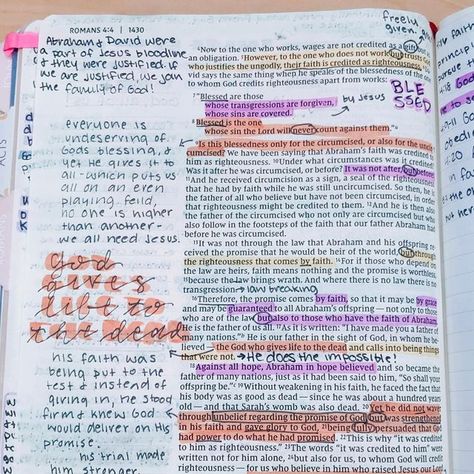 ROMANS 4:4 | 1430
Abraham & David were
a part of Jesus' bloodline
& they were justified. if
we are justified, we join
the family of God!
everyone is
undeserving of
God's blessing, &
yet He gives it
to all - which puts us
all on an even
playing feild,
no one is higher
than another -
we all need Jesus.
God
gives
life to
the dead
his faith was
being put to the
test & instead of
giving in, he stood
firm & knew God
would deliver on His
promise.
his trial made
him stronger
freely
given
4Now to the one who works, wages are not credited as a gift but as
an obligation. 5However, to the one who does not work but trusts God
who justifies the ungodly, their faith is credited as righteousness. 6Da-
vid says the same thing when he speaks of the blessedness of the one
to whom God credits righteousness apart from works:
7"Blessed are those
whose transgressions are forgiven,
whose sins are covered.
by Jesus
BLE
SSED
8Blessed is the one
whose sin the Lord will never count against them."
9Is this blessedness only for the circumcised, or also for the uncir-
cumcised? We have been saying that Abraham's faith was credited to
him as righteousness. 10Under what circumstances was it credited?
Was it after he was circumcised, or before? It was not after, but before!
11And he received circumcision as a sign, a seal of the righteousness
that he had by faith while he was still uncircumcised. So then, he is
the father of all who believe but have not been circumcised, in order
that righteousness might be credited to them. 12And he is then also
the father of the circumcised who not only are circumcised but who
also follow in the footsteps of the faith that our father Abraham had
before he was circumcised.
13It was not through the law that Abraham and his offspring re-
ceived the promise that he would be heir of the world, but through
the righteousness that comes by faith. 14For if those who depend on
the law are heirs, faith means nothing and the promise is worthless,
15because the law brings wrath. And where there is no law there is no
transgression. → law breaking
16Therefore, the promise comes by faith, so that it may be by grace
and may be guaranteed to all Abraham's offspring — not only to those
who are of the law but also to those who have the faith of Abraham.
He is the father of us all. 17As it is written: "I have made you a father of
many nations." He is our father in the sight of God, in whom he be-
lieved — the God who gives life to the dead and calls into being things
that were not. → He does the impossible!
18Against all hope, Abraham in hope believed and so became the
father of many nations, just as it had been said to him, "So shall your
offspring be." 19Without weakening in his faith, he faced the fact that
his body was as good as dead — since he was about a hundred years
old — and that Sarah's womb was also dead. 20Yet he did not waver
through unbelief regarding the promise of God, but was strengthened
in his faith and gave glory to God, 21being fully persuaded that God
had power to do what he had promised. 22This is why "it was credited
to him as righteousness." 23The words "it was credited to him" were
written not for him alone, 24but also for us, to whom God will credit
righteousness — for us who believe in him who raised Jesus our Lord